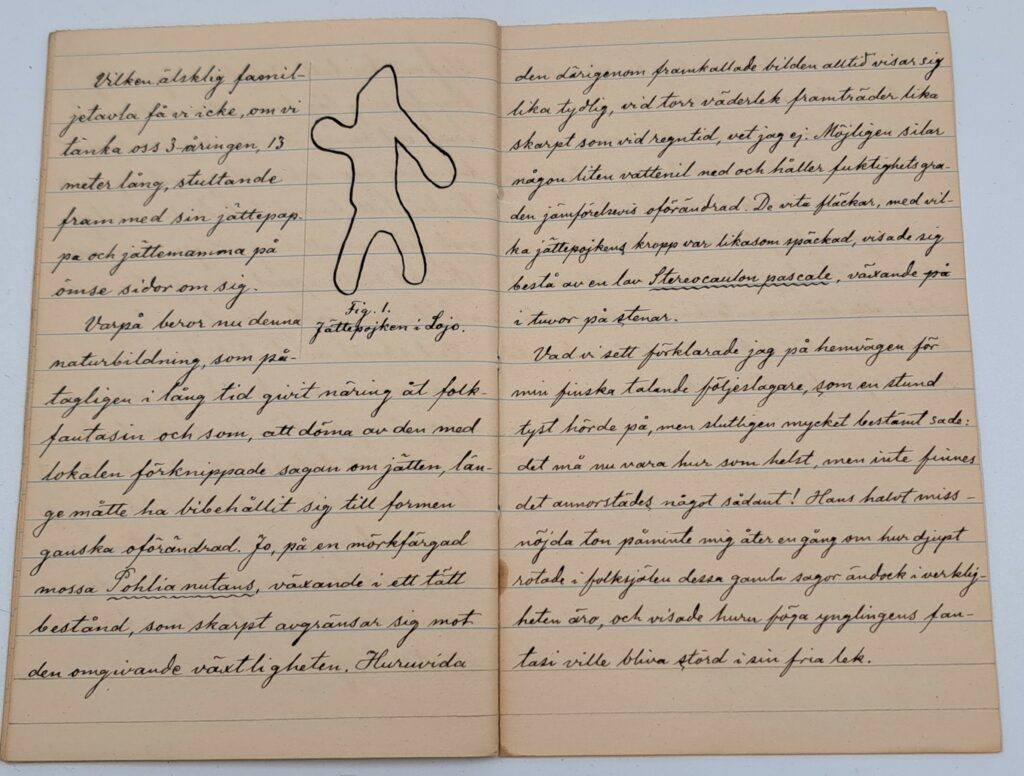 Vilken älsklig famil-
jetavla få vi icke, om vi
tänka oss 3-åringen, 13
meter lång, stultande
fram med sin jättepap-
pa och jättemamma på
ömse sidor om sig.
Varpå beror nu denna
naturbildning, som på-
tagligen i lång tid givit näring åt folk-
fantasin och som, att döma av den med
lokalen förknippade sagan om jätten, län-
ge måtte ha bibehållit sig till formen
ganska oförändrad. Jo, på en mörkfärgad
mossa Pohlia nutans, växande i ett tätt
bestånd, som skarpt avgränsar sig mot
den omgivande växtligheten. Huruvida
Fig. 1.
Jättepojken i Lojo.
den därigenom framkallade bilden alltid visar sig
lika tydlig, vid torr väderlek framträder lika
skarpt som vid regntid, vet jag ej. Möjligen silar
någon liten vattenil ned och håller fuktighetsgra-
den jämförelsevis oförändrad. De vita fläckar, med vil-
ka jättepojkens kropp var likasom späckad, visade sig
bestå av en lav Stereocaulon pascale, växande på
i tuvor på stenar.
Vad vi sett förklarade jag på hemvägen för
min finska talande följeslagare, som en stund
tyst hörde på, men slutligen mycket bestämt sade:
det må nu vara hur som helst, men inte finnes
det annorstädes något sådant! Hans halvt miss-
nöjda ton påminte mig åter en gång om hur djupt
rotade i folksjälen dessa gamla sagor ändock i verklig-
heten äro, och visade huru föga ynglingens fan-
tasi ville bliva störd i sin fria lek.